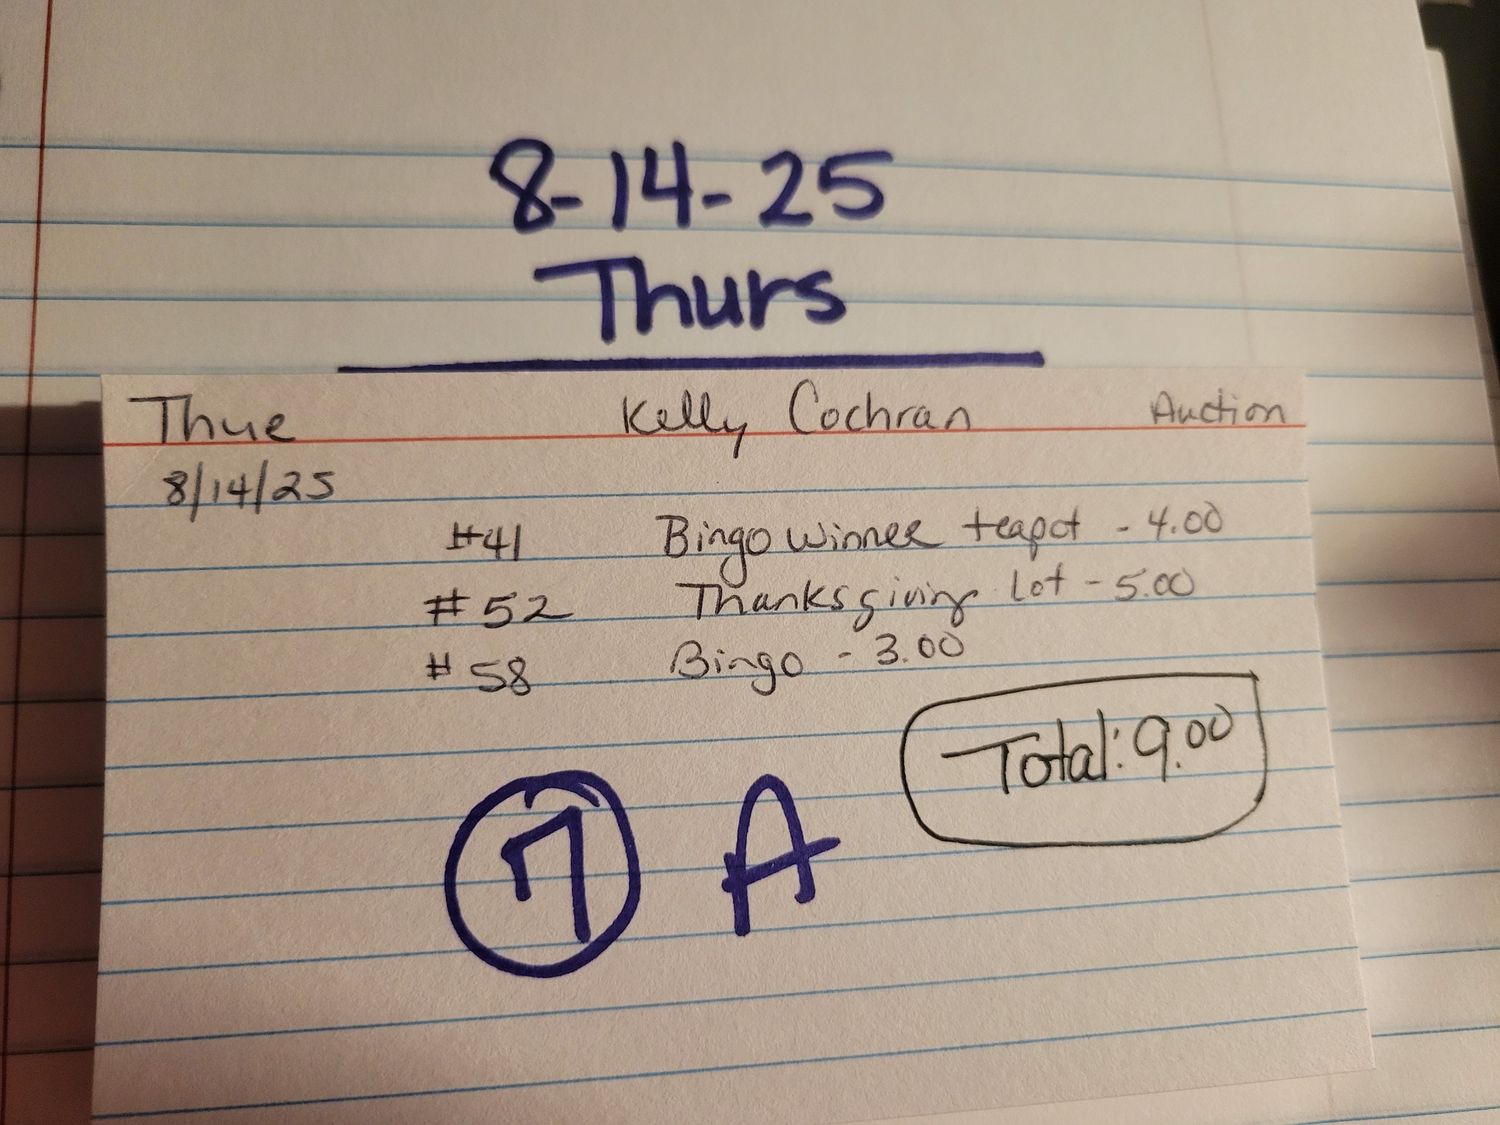 8-14-25
Thurs
Thue Kelly Cochran Auction
8/14/25
#41 Bingo winner teapot - 4.00
#52 Thanksgiving Lot - 5.00
#58 Bingo - 3.00
Total: 9.00
7 A